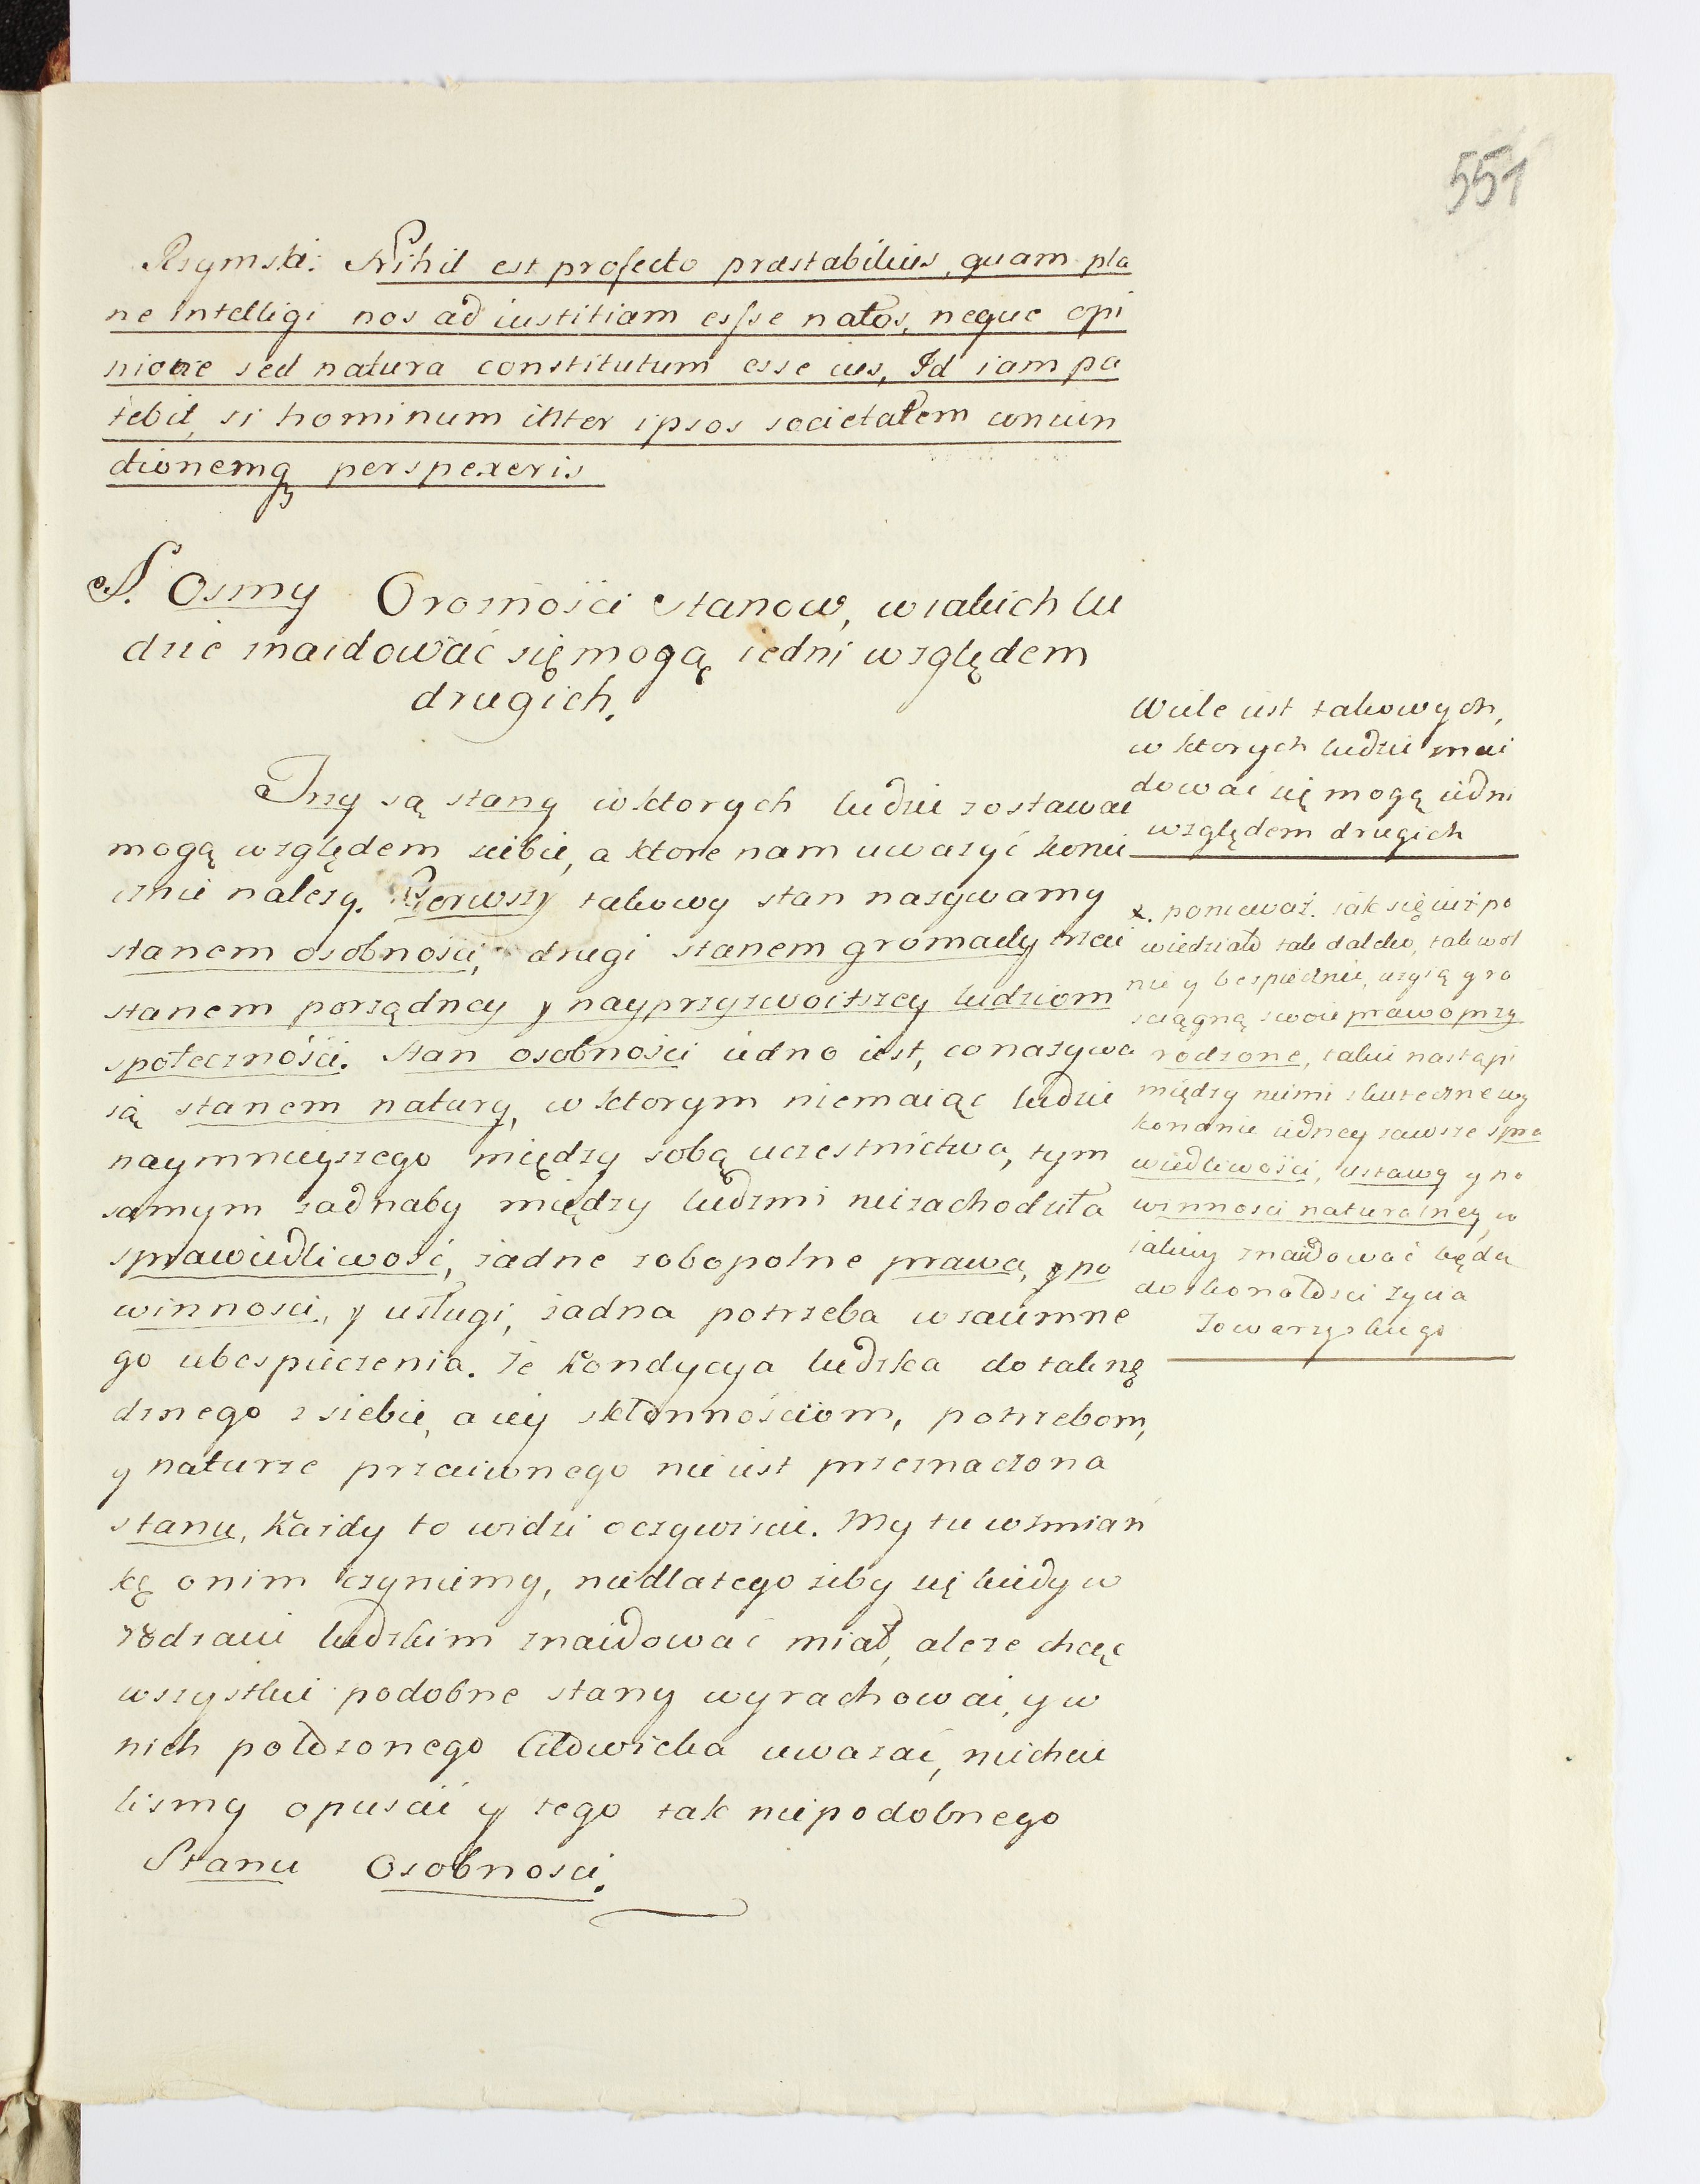 551
Rzymski: Nihil est profecto præstabilius, quam pla
ne intelligi nos ad iustitiam esse natos, neque opi
nione sed natura constitutum esse ius, Id iam pa
tebit, si hominum inter ipsos societatem coniun
ctionemq perspexeris
§. Osmy O rożności stanow, w iakich lu
dzie znaidować się mogą iedni względem
drugich.
Trzy są stany w ktorych ludzie zostawać
mogą względem siebie, a ktore nam uważyć konie
cznie należy. Pierwszy takowy stan nazywamy
stanem osobności, drugi stanem gromady trzeci
stanem porządney y nayprzyzwoitszey ludziom
społeczności. Stan osobności iedno iest, co nazywa
ią stanem natury, w ktorym niemaiąc ludzie
naymnieyszego między sobą uczestnictwa, tym
samym żadnaby między ludzmi niezachodziła
sprawiedliwość, żadne zobopolne prawa, y po
winnosci, y usługi, żadna potrzeba wzaiemne
go ubespieczenia. Że kondycya ludzka do tak nę
dznego z siebie, a iey skłonnościom, potrzebom,
y naturze przeciwnego nie iest przeznaczona
stanu, każdy to widzi oczywiscie. My tu wzmian
kę o nim czyniemy, nie dlatego żeby się kiedy w
rodzaiu ludzkim znaidować miał, ale że chcąc
wszystkie podobne stany wyrachować, y w
nich położonego Człowieka uważać, niechcie
lismy opuscić y tego tak niepodobnego
Stanu Osobnosci.
Wiele iest takowych,
w ktorych ludzie znai
dować się mogą iedni
względem drugich
x. ponieważ. iak się iuż po
wiedziało tak daleko, tak wol
nie y bespiecznie, użyią y ro
sciągną swoie prawo przy
rodzone, iakie nastąpi
między niemi skuteczne wy
konanie iedney zawsze spra
wiedliwości, ustawy y po
winnosci naturalney, w
iakiey znaidować będą
doskonałosci życia
Towarzyskiego